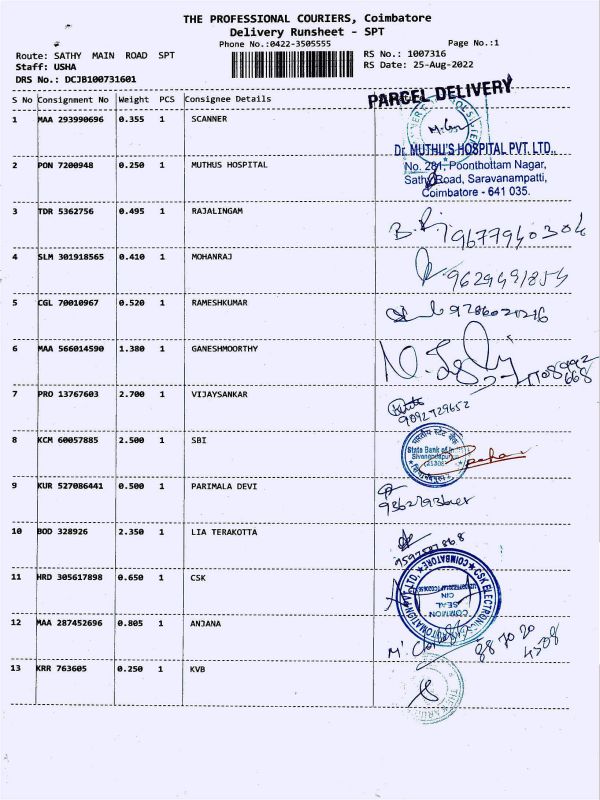 THE PROFESSIONAL COURIERS, Coimbatore
Delivery Runsheet - SPT
Phone No.:0422-3505555
Page No.:1
Route: SATHY MAIN ROAD SPT
RS No.: 1007316
Staff: USHA
RS Date: 25-Aug-2022
DRS No.: DCJB100731601
S No Consignment No Weight PCS Consignee Details
PARCEL DELIVERY
1 MAA 293990696 0.355 1 SCANNER
Dr. MUTHU'S HOSPITAL PVT. LTD.,
2 PON 7200948 0.250 1 MUTHUS HOSPITAL
No. 281, Poonthottam Nagar,
Sathy Road, Saravanampatti,
Coimbatore - 641 035.
3 TDR 5362756 0.495 1 RAJALINGAM
4 SLM 301918565 0.410 1 MOHANRAJ
5 CGL 70010967 0.520 1 RAMESHKUMAR
6 MAA 566014590 1.380 1 GANESHMOORTHY
7 PRO 13767603 2.700 1 VIJAYSANKAR
9092729652
8 KCM 60057885 2.500 1 SBI
भारतीय स्टेट बैंक
State Bank of
9 KUR 527086441 0.500 1 PARIMALA DEVI
10 BOD 328926 2.350 1 LIA TERAKOTTA
11 HRD 305617898 0.650 1 CSK
CSK ELECTRONIC AUTOMATION PVT. LTD.
COIMBATORE
COMMON
SEAL
CIN
12 MAA 287452696 0.805 1 ANJANA
88 70 20
4308
13 KRR 763605 0.250 1 KVB